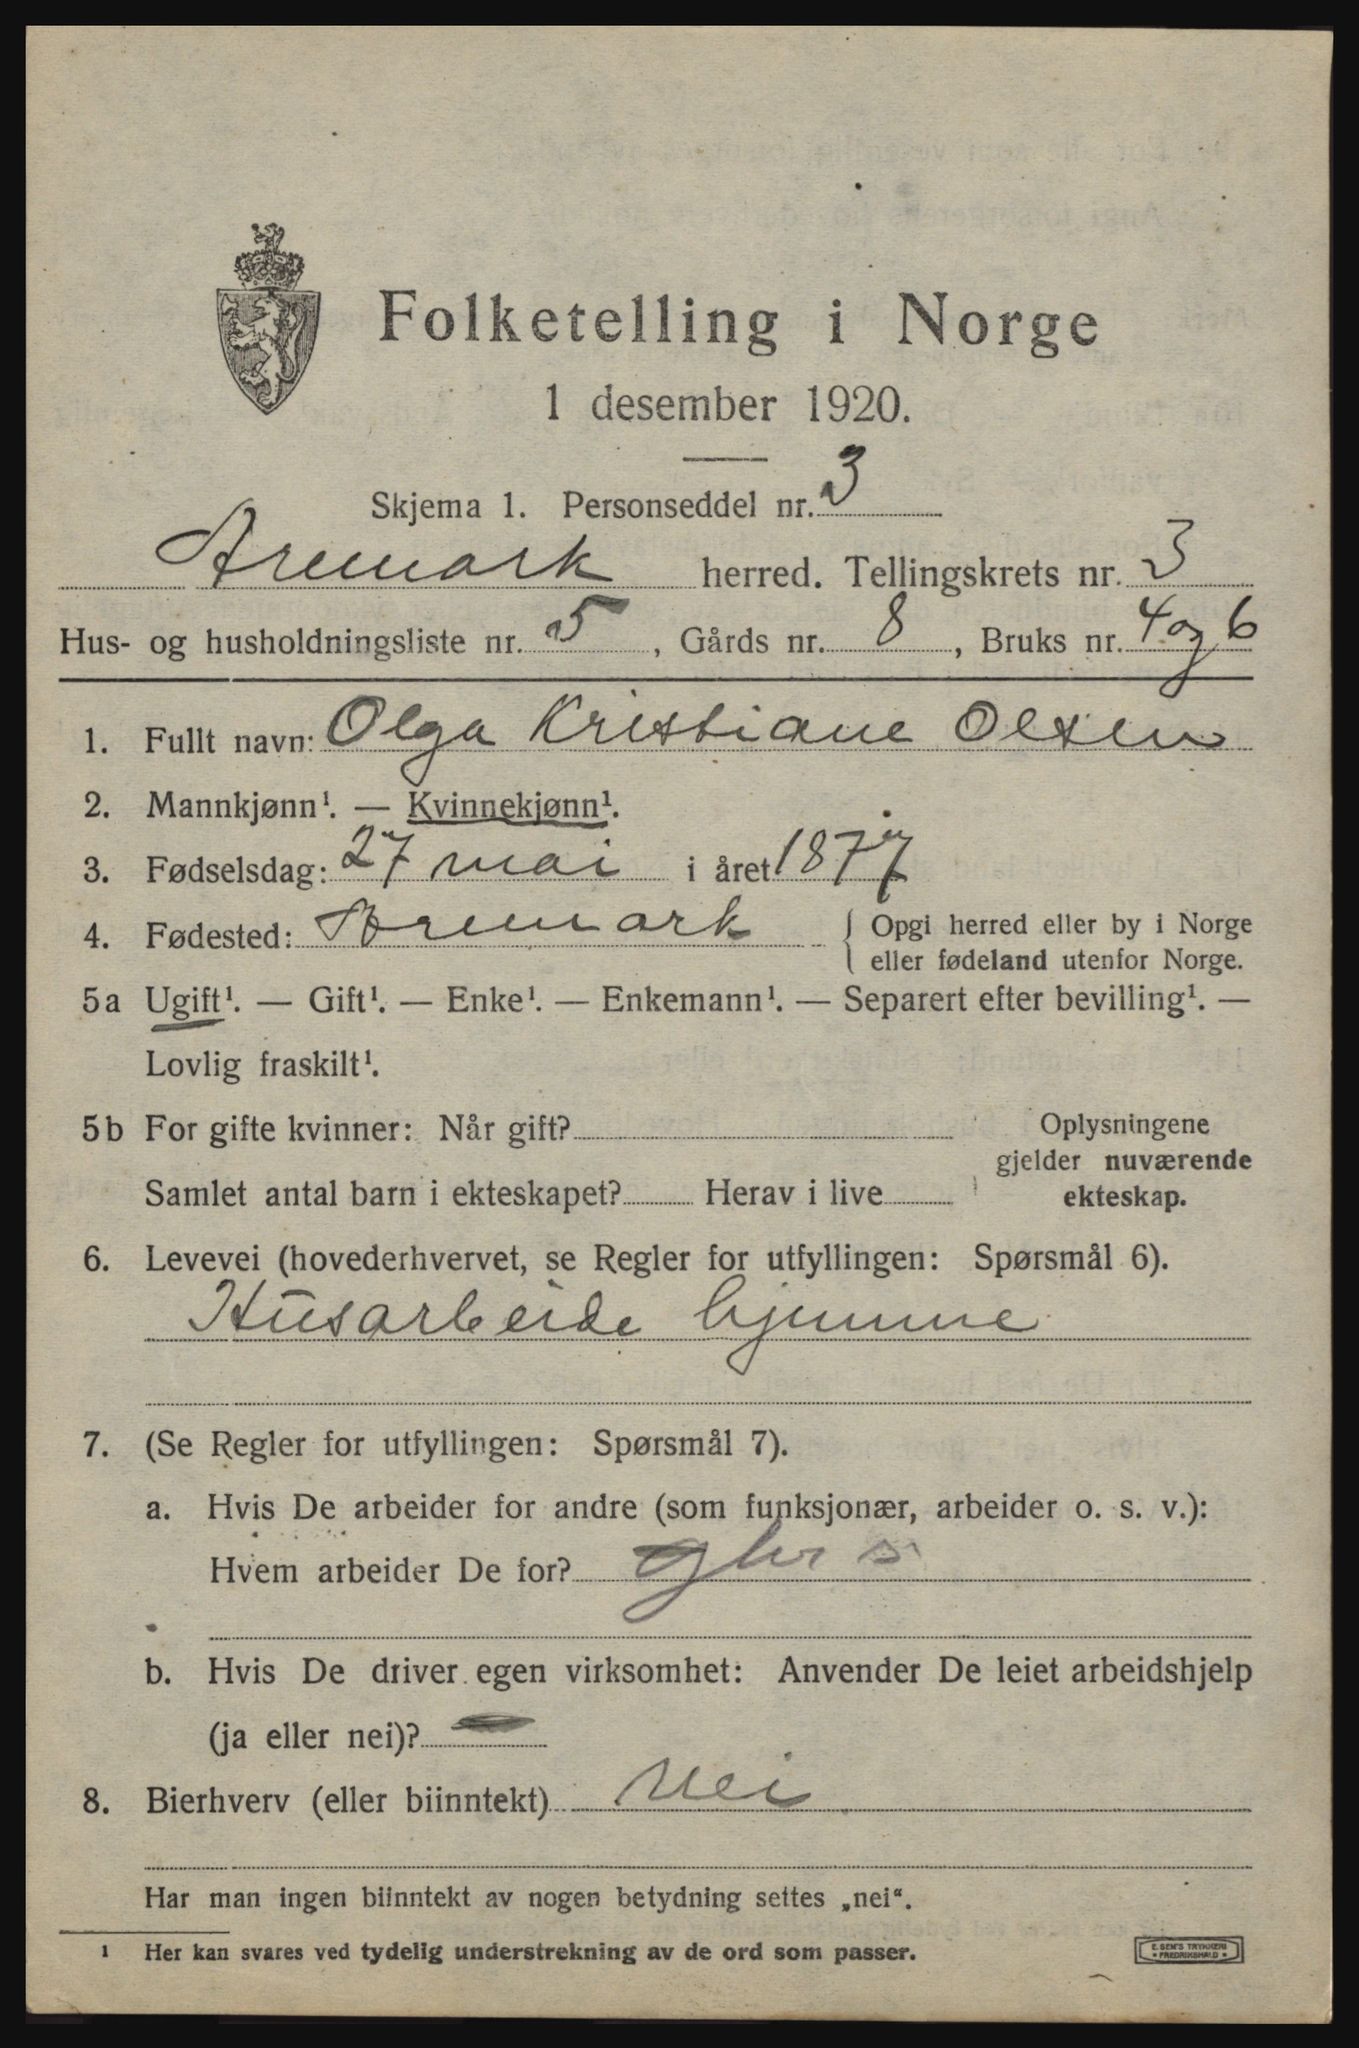 Folketelling i Norge
1 desember 1920.
Skjema 1. Personseddel nr. 3
Aremark herred. Tellingskrets nr. 3
Hus- og husholdningsliste nr. 5, Gårds nr. 8, Bruks nr. 4 og 6
1. Fullt navn: Olga Kristiane Olsen
2. Mannkjønn¹. — Kvinnekjønn¹.
3. Fødselsdag: 27 mai i året 1877
4. Fødested: Aremark { Opgi herred eller by i Norge
eller fødeland utenfor Norge.
5a Ugift¹. — Gift¹. — Enke¹. — Enkemann¹. — Separert efter bevilling¹. —
Lovlig fraskilt¹.
5b For gifte kvinner: Når gift?
Samlet antal barn i ekteskapet? Herav i live
Oplysningene
gjelder nuværende
ekteskap.
6. Levevei (hovederhvervet, se Regler for utfyllingen: Spørsmål 6).
Husarbeide hjemme
7. (Se Regler for utfyllingen: Spørsmål 7).
a. Hvis De arbeider for andre (som funksjonær, arbeider o. s. v.):
Hvem arbeider De for?
b. Hvis De driver egen virksomhet: Anvender De leiet arbeidshjelp
(ja eller nei)? —
8. Bierhverv (eller biinntekt) Nei
Har man ingen biinntekt av nogen betydning settes „nei“.
¹ Her kan svares ved tydelig understrekning av de ord som passer.
E. SEM'S TRYKKERI
FREDRIKSHALD